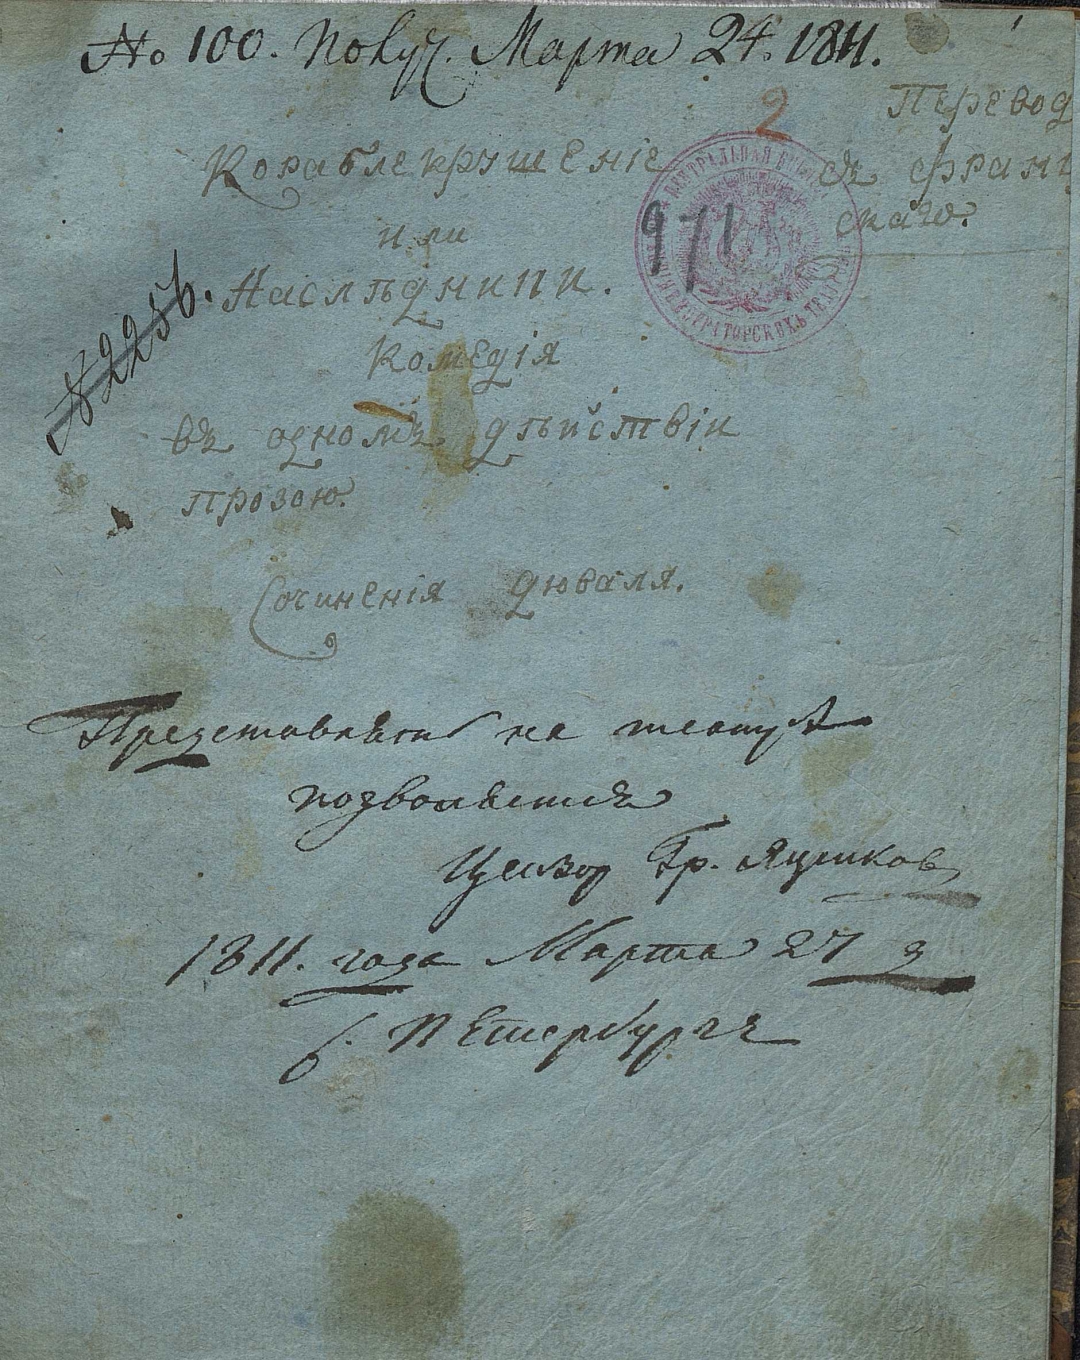 № 100. Получ. Марта 24. 1811.
2
Перевод
съ франц
скаго.
Кораблекрушеніе
или
Наслѣдники.
Комедія
въ одномъ дѣйствіи
прозою.
Сочиненія Дюваля.
№ 2256.
971
ЦЕНТРАЛЬНАЯ БИБЛ
ИМПЕРАТОРСКИХЪ ТЕАТР
Представлять на театрѣ
позволяется
Цензор Гр. Яценков
1811. года Марта 27 д
С. Петербургъ